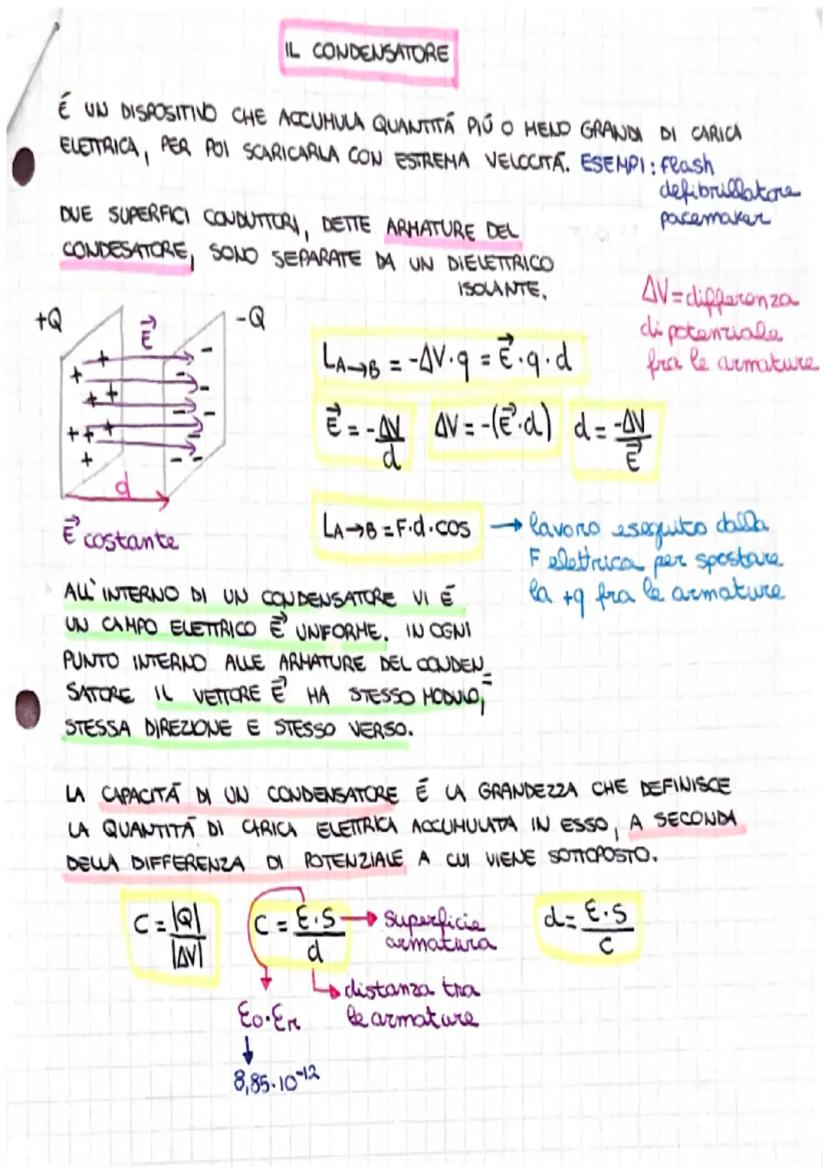 IL CONDENSATORE
É UN DISPOSITIVO CHE ACCUMULA QUANTITÁ PIÚ O MENO GRANDI DI CARICA
ELETTRICA, PER POI SCARICARLA CON ESTREMA VELOCITÁ. ESEMPI: flash
defibrillatore
pacemaker
DUE SUPERFICI CONDUTTORI, DETTE ARMATURE DEL
CONDESATORE, SONO SEPARATE DA UN DIELETTRICO
ISOLANTE.
ΔV = differenza
di potenziale
fra le armature
+Q E⃗ -Q
L A→B = -ΔV·q = E⃗·q·d
E⃗ = -ΔV/d ΔV = -(E⃗·d) d = -ΔV/E⃗
d
E⃗ costante
L A→B = F·d·cos → lavoro eseguito dalla
F elettrica per spostare
la +q fra le armature
ALL'INTERNO DI UN CONDENSATORE VI É
UN CAMPO ELETTRICO E⃗ UNFORME. IN OGNI
PUNTO INTERNO ALLE ARMATURE DEL CONDEN=
SATORE IL VETTORE E⃗ HA STESSO MODULO,
STESSA DIREZIONE E STESSO VERSO.
LA CAPACITÁ DI UN CONDENSATORE É LA GRANDEZZA CHE DEFINISCE
LA QUANTITÁ DI CARICA ELETTRICA ACCUMULATA IN ESSO, A SECONDA
DELLA DIFFERENZA DI POTENZIALE A CUI VIENE SOTTOPOSTO.
C = |Q|/|ΔV| C = ε·S/d → superficie
armatura
d = ε·S/C
distanza tra
le armature
ε0·εr
8,85·10⁻¹²